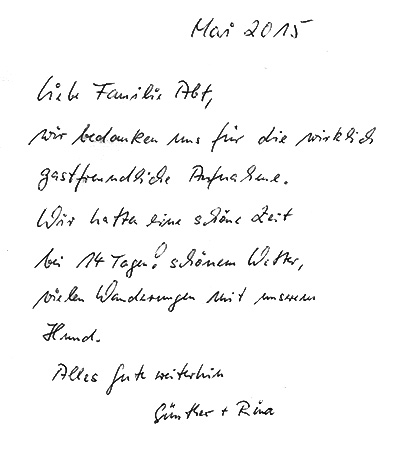 Mai 2015
Liebe Familie Abt,
wir bedanken uns für die wirklich
gastfreundliche Aufnahme.
Wir hatten eine schöne Zeit
bei 14 Tagen! schönem Wetter,
vielen Wanderungen mit unserem
Hund.
Alles Gute weiterhin
Günther + Rina